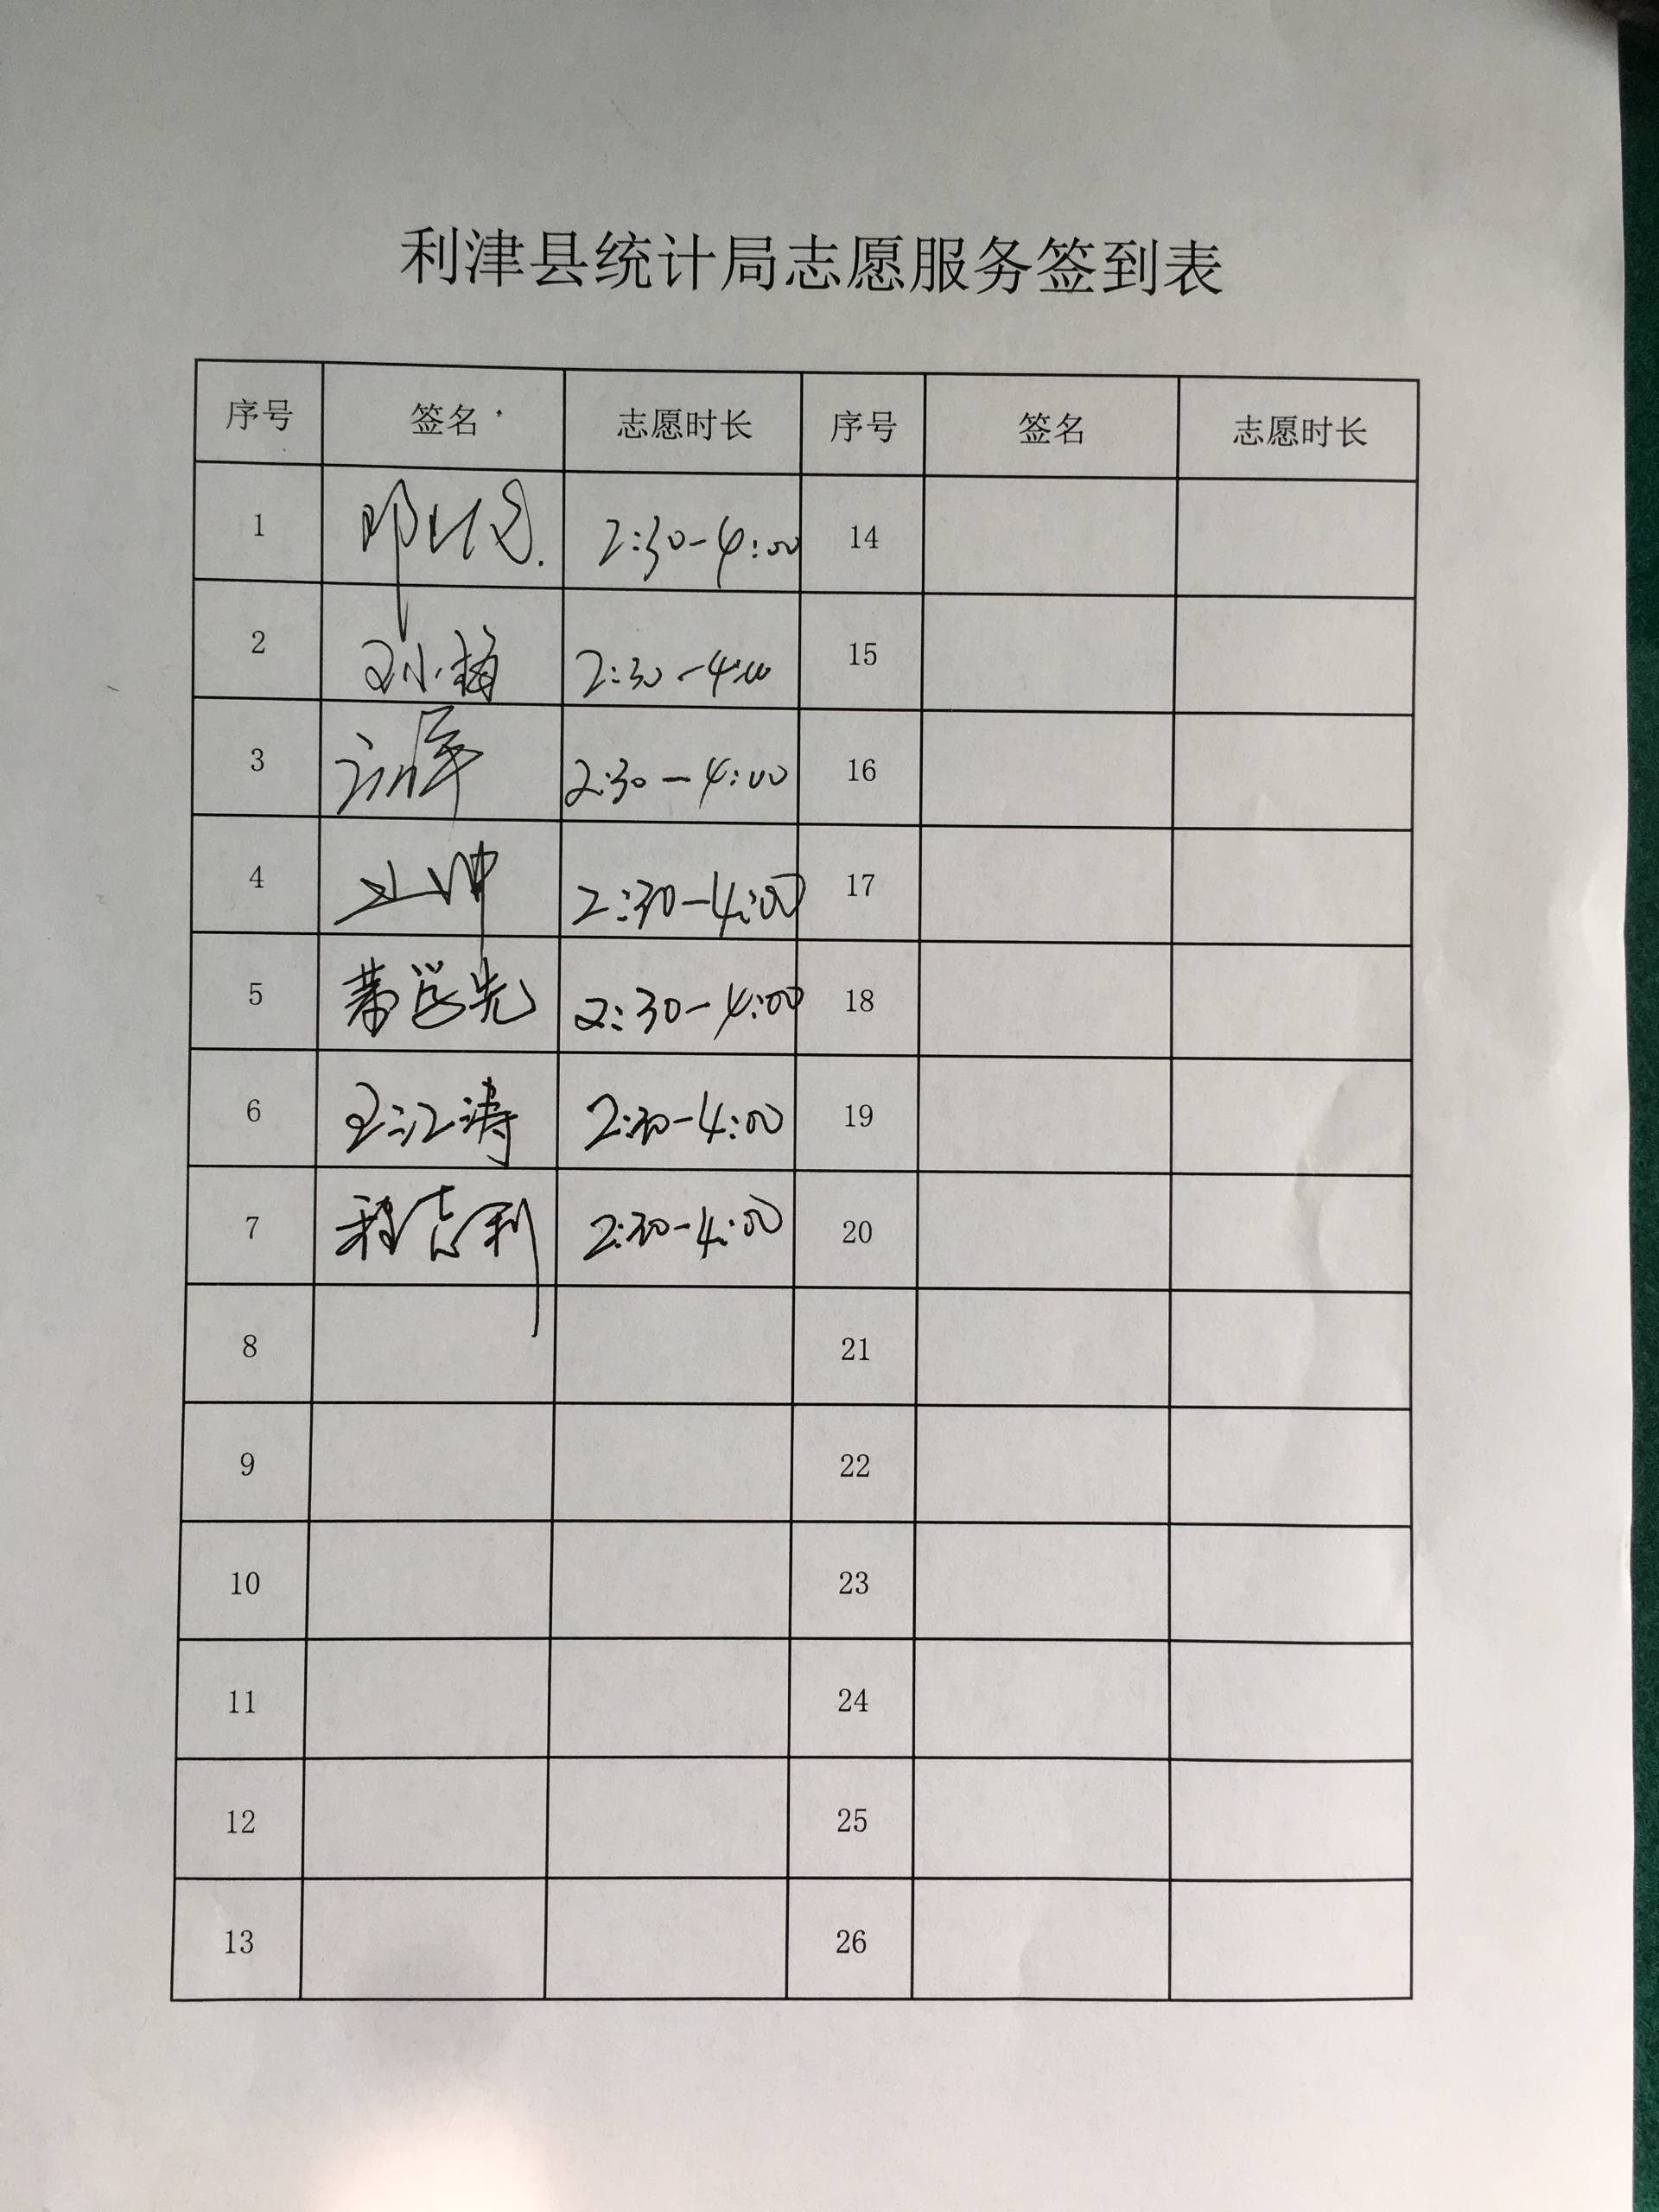 利津县统计局志愿服务签到表
序号 签名 志愿时长 序号 签名 志愿时长
1 2:30-4:00 14
2 小梅 2:30-4:00 15
3 2:30-4:00 16
4 2:30-4:00 17
5 2:30-4:00 18
6 王江涛 2:30-4:00 19
7 程吉利 2:30-4:00 20
8 21
9 22
10 23
11 24
12 25
13 26